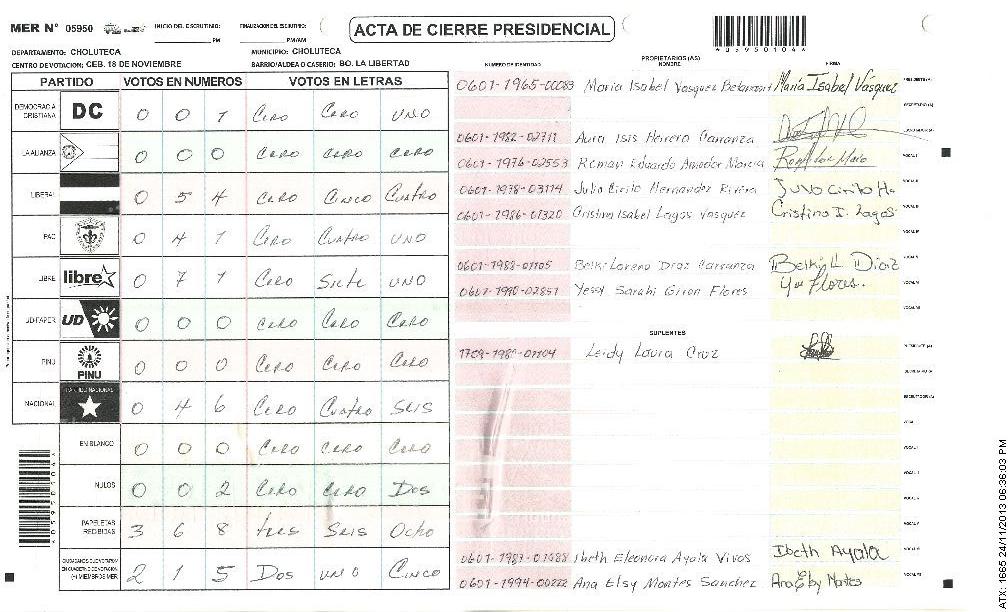 MER N° 05950 INICIO DEL ESCRUTINIO: PM FINALIZACION DEL ESCRUTINIO: PM/AM
ACTA DE CIERRE PRESIDENCIAL
4059501044
DEPARTAMENTO: CHOLUTECA MUNICIPIO: CHOLUTECA
CENTRO DE VOTACION: CEB. 18 DE NOVIEMBRE BARRIO/ALDEA O CASERIO: BO. LA LIBERTAD
PARTIDO VOTOS EN NUMEROS VOTOS EN LETRAS
DEMOCRACIA CRISTIANA DC 0 0 1 Cero Cero uno
LA ALIANZA 0 0 0 Cero Cero Cero
LIBERAL 0 5 4 Cero Cinco Cuatro
PAC 0 4 1 Cero Cuatro uno
LIBRE libre 0 7 1 Cero Siete uno
UD FAPER UD 0 0 0 Cero Cero Cero
PINU PINU 0 0 0 Cero Cero Cero
NACIONAL PARTIDO NACIONAL 0 4 6 Cero Cuatro Seis
EN BLANCO 0 0 0 Cero Cero Cero
NULOS 0 0 2 Cero Cero Dos
PAPELETAS RECIBIDAS 3 6 8 tres Seis Ocho
CIUDADANOS QUE VOTARON EN CUADERNO DE VOTACION (+) MIEMBROS MER 2 1 5 Dos uno Cinco
PROPIETARIOS (AS)
NUMERO DE IDENTIDAD NOMBRE FIRMA
0601-1965-00083 Maria Isabel Vasquez Betancourt María Isabel Vásquez PRESIDENTE(A)
SECRETARIO (A)
0601-1982-02711 Aura Isis Herrera Carranza ESCRUTADOR (A)
0601-1976-02553 Roman Eduardo Amador Murcia VOCAL I
0601-1978-03114 Julio Cirilo Hernandez Rivera Julio Cirilo H. VOCAL II
0601-1986-01320 Cristina Isabel Lagos Vasquez Cristina I. Lagos VOCAL III
VOCAL IV
0601-1988-01105 Belki Lorena Diaz Carranza Belky L Diaz VOCAL V
0601-1990-02851 Yessy Sarahi Giron Flores Flores. VOCAL VI
SUPLENTES
1709-1989-01104 Leidy Laura Cruz PRESIDENTE (A)
SECRETARIO (A)
ESCRUTADOR(A)
0601-1987-01088 Ibeth Eleonora Ayala Vivas Ibeth Ayala
0601-1994-00222 Ana Elsy Montes Sanchez Ana Elsy Montes
ATX: 1665 24/11/2013 06:36:03 PM